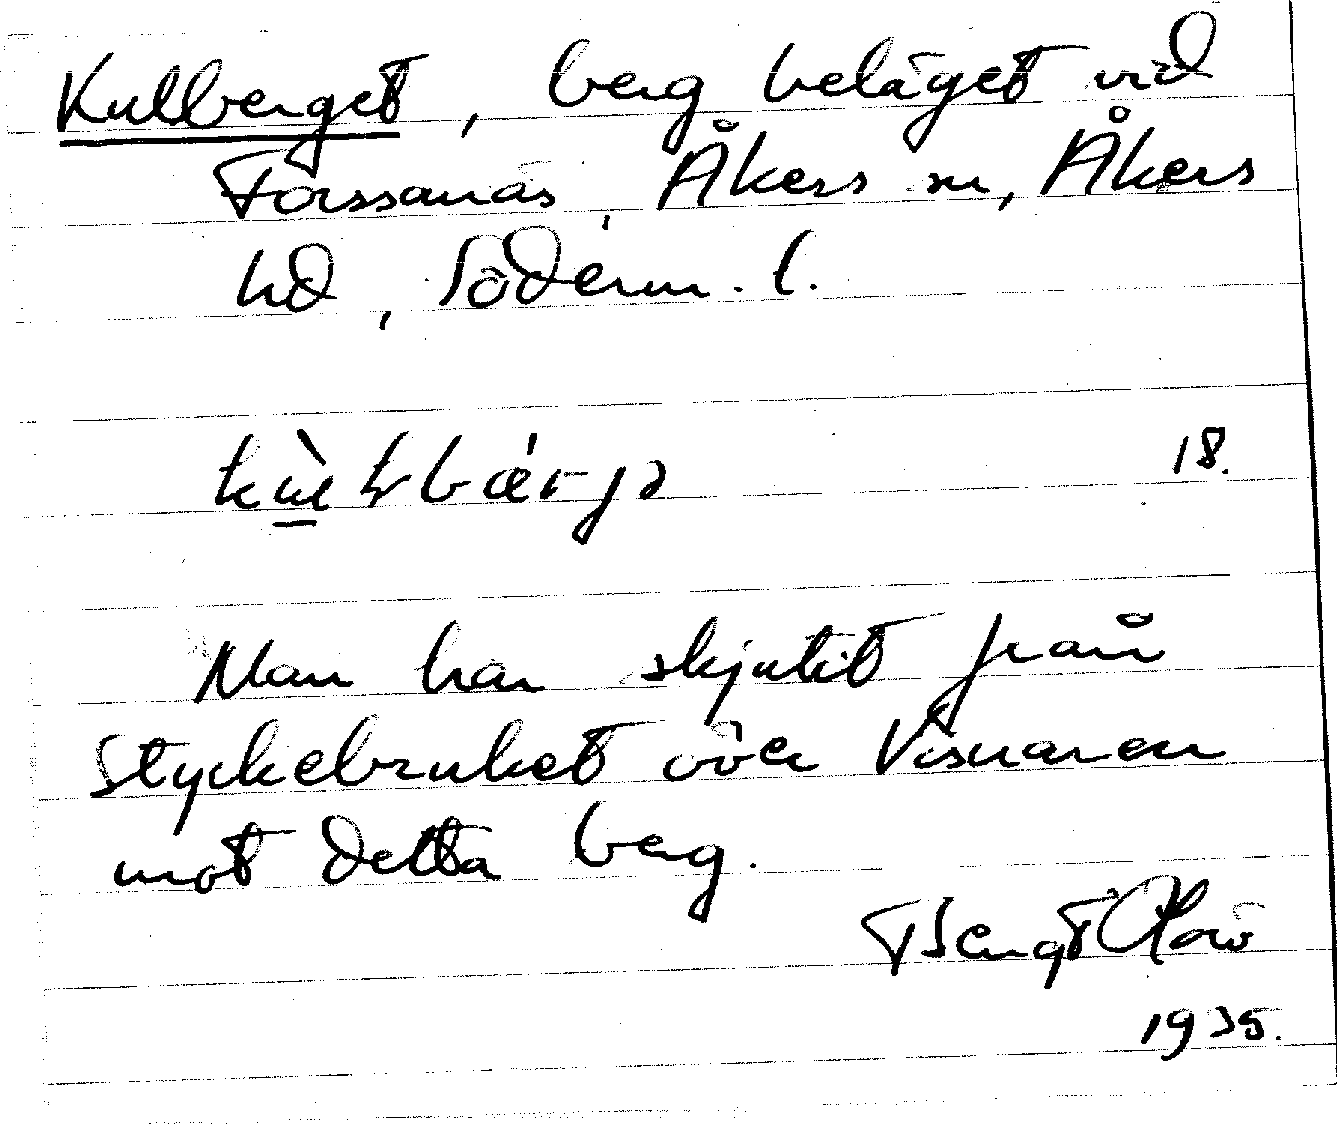 Kulberget, berg beläget vid
Forssanäs, Åkers sn, Åkers
hd, Söderm. l.
18.
Man har skjutit från
Styckebruket över Visnaren
mot detta berg.
Bengt
1935.